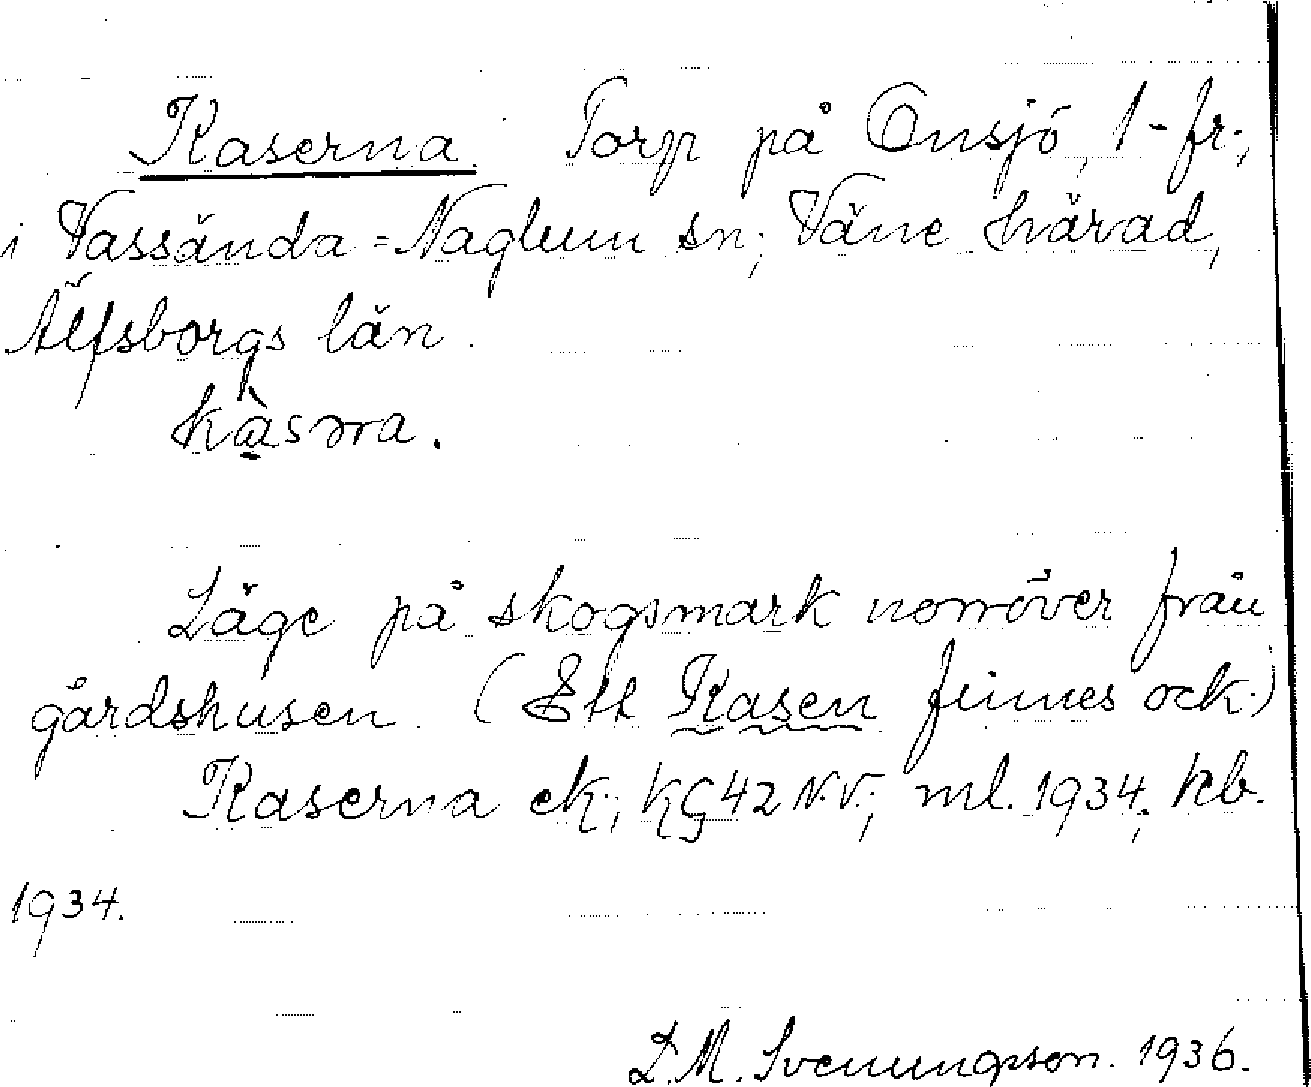 Kaserna. Torp på Onsjö, 1-fr.,
i Vassända=Naglum sn; Väne härad,
Älfsborgs län.
kàsɷra.
Läge på skogsmark norröver från
gårdshusen. (Ett Kasen finnes ock.)
Kaserna ek., KG 42 N.V.; ml. 1934; kb.
1934.
D.M. Svenungsson. 1936.